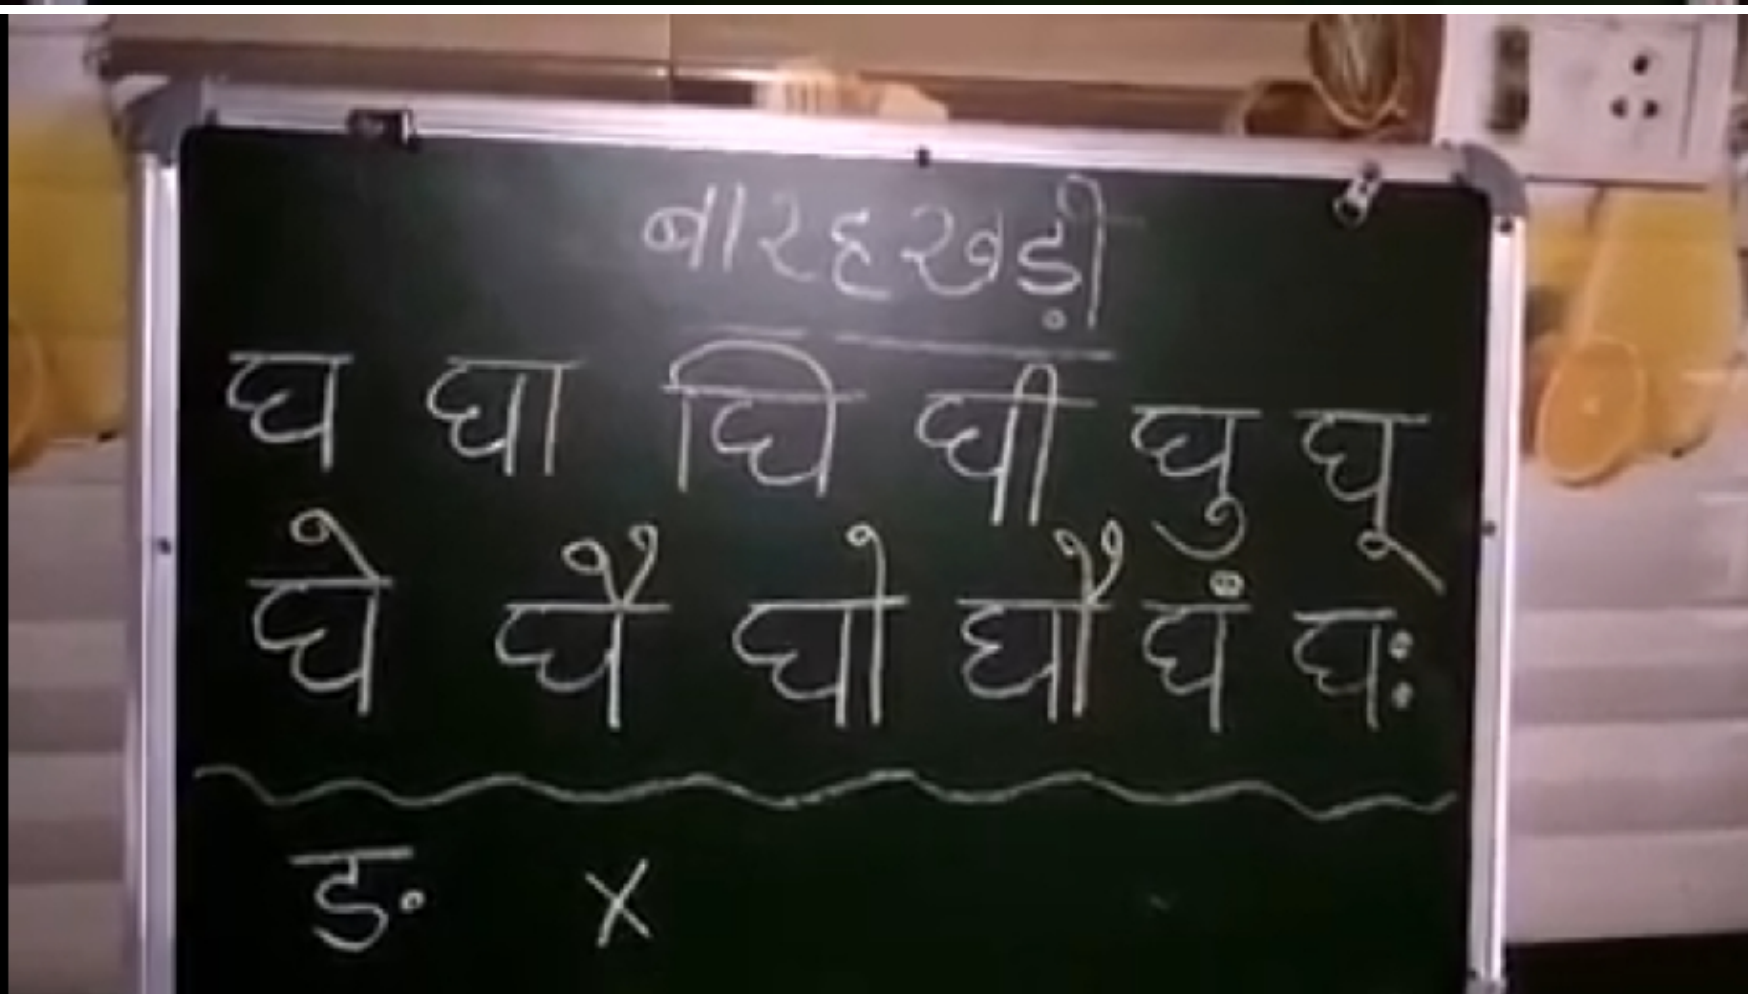 बारहखड़ी
घ घा घि घी घु घू
घे घै घो घौ घं घः
ङ x